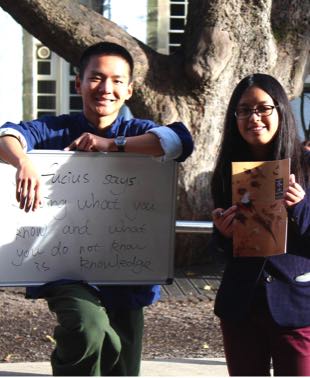 fucius says
ing what you
know and what
you do not know
is knowledge